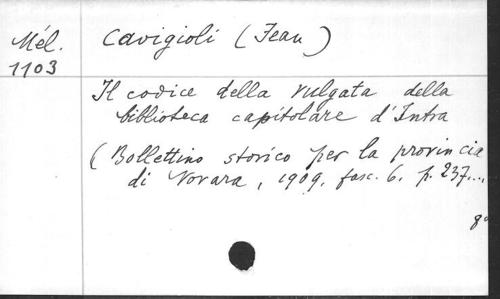 Mél.
1103
Cavigioli (Jean)
Il codice della vulgata della
biblioteca capitolare d'Intra
(Bollettino storico per la provincia
di Novara, 1909, fasc. 6, p. 237...,
8°